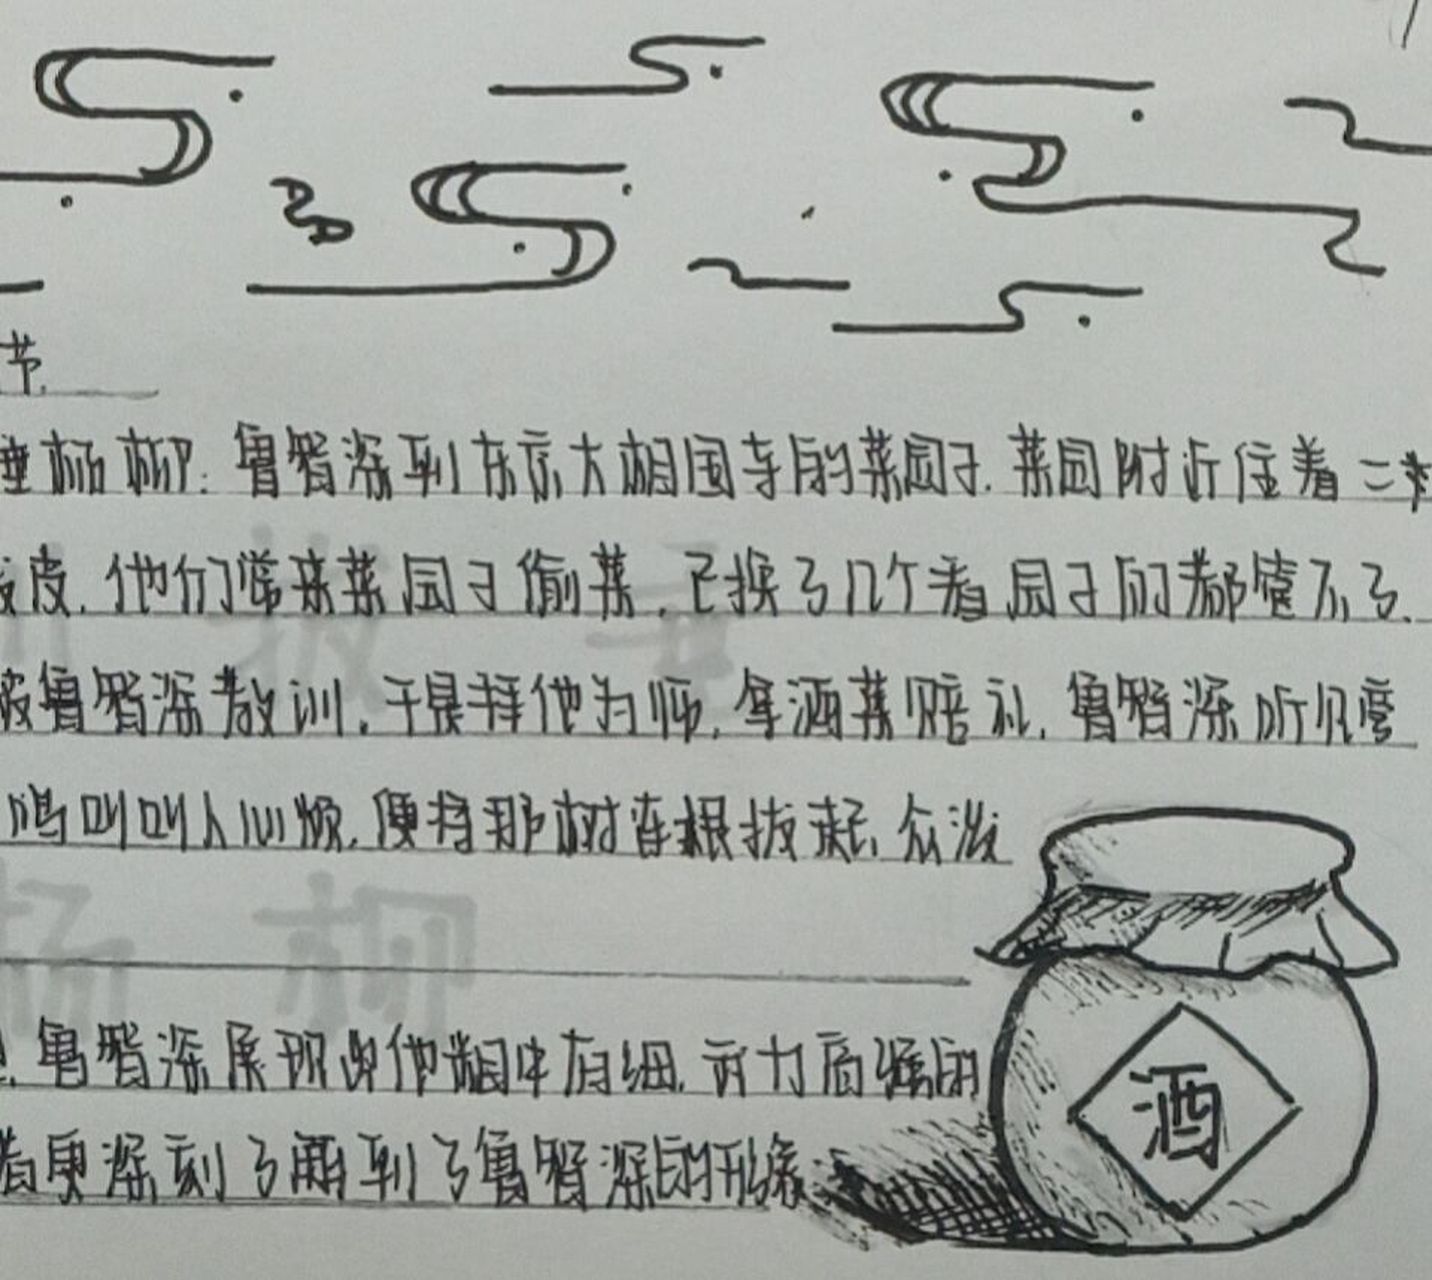 节
垂杨柳：鲁智深到东京大相国寺的菜园子.菜园附近住着二
皮.他们常来菜园子偷菜.已换了几个看园子的都管不了.
被鲁智深教训.于是拜他为师.拿酒菜赔礼.鲁智深听见
鸣叫叫人心烦.便将那树连根拔起.众泼
鲁智深展现出他粗中有细.武力高强的
者更深刻了解到了鲁智深的形象
酒
拔 垂
杨 柳